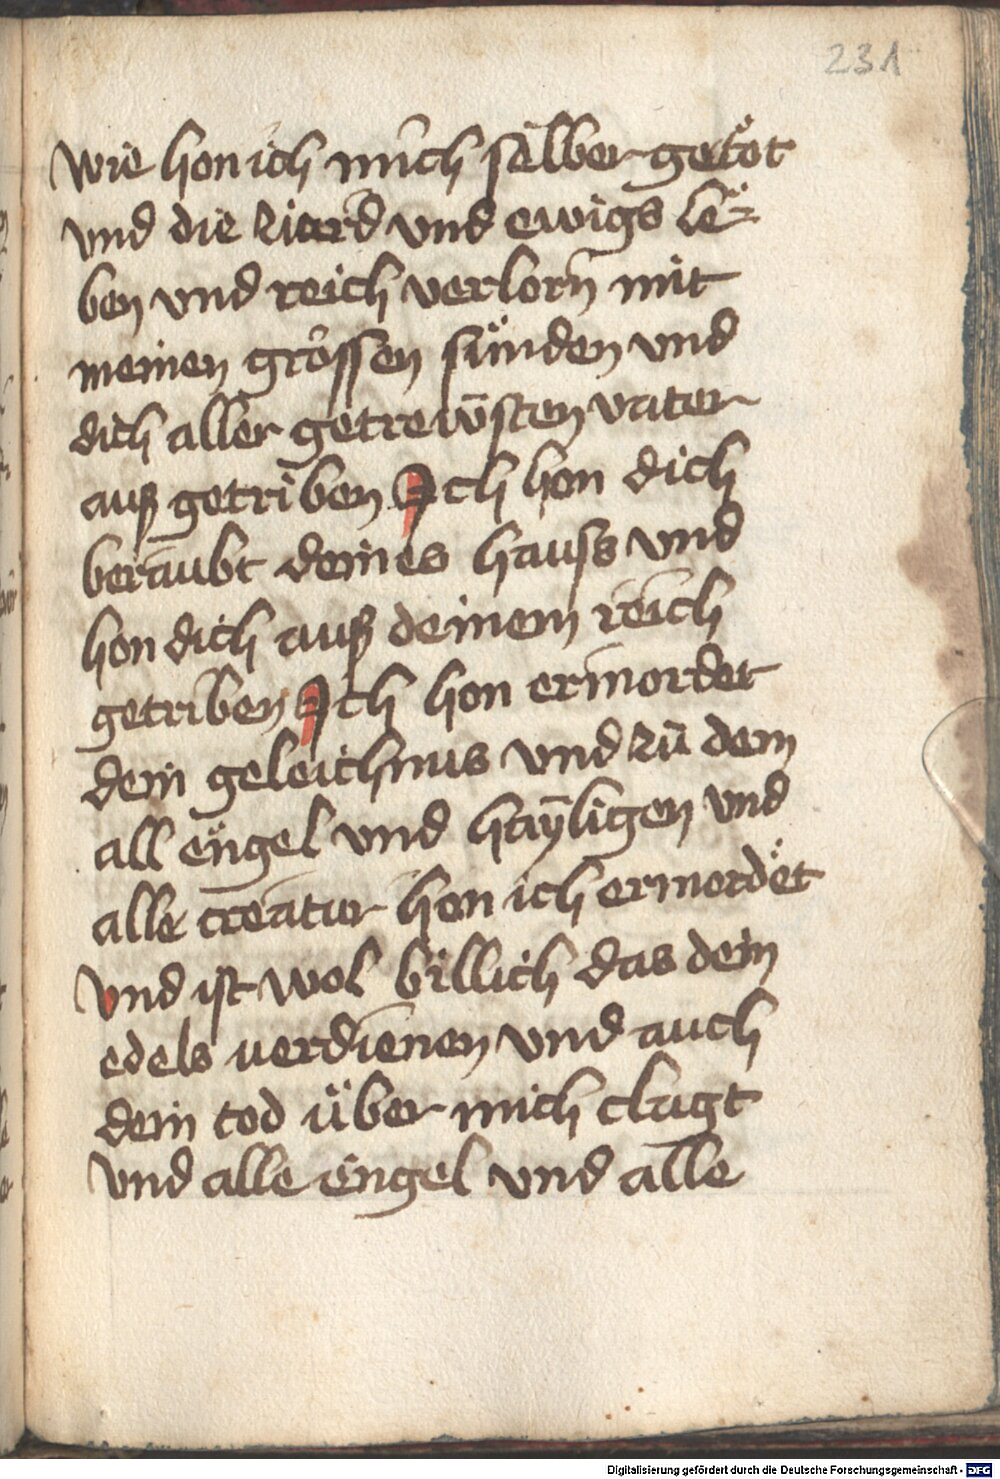 231
wie hon ich mich selber getöt
vnd die zierd vnd ewigs le¨=
ben vnd reich verlorn mit
meinen grössen sünden vnd
dich aller getrewsten vater
auß getriben Ich hon dich
beraubt deines hauss vnd
hon dich auß deinem reich
getriben Ich hon ermordet
dein geleichnus vnd zů dem
all engel vnd hayligen vnd
alle creatur hon ich ermordet
Vnd ist wol billich das dein
edels verdienen vnd auch
dein tod über mich clagt
Vnd alle engel vnd alle
Digitalisierung gefördert durch die Deutsche Forschungsgemeinschaft - DFG